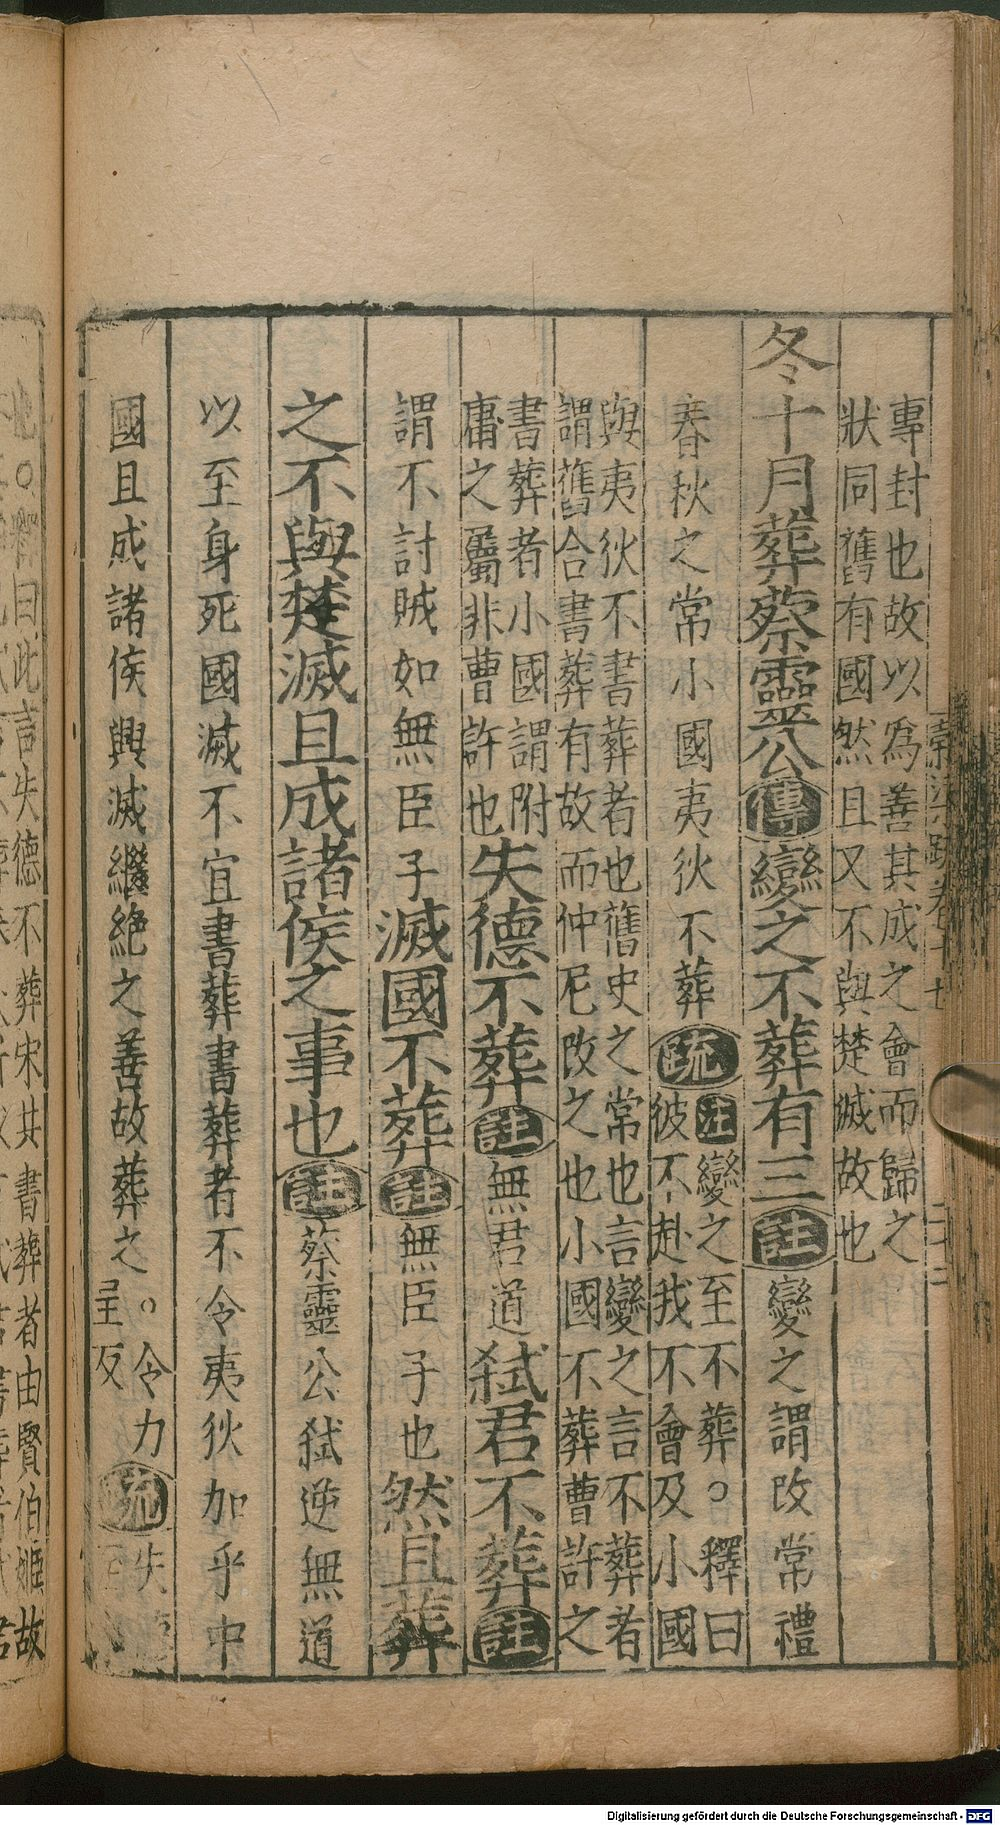 專封也故以爲善其成之會而歸之
狀同舊有國然且又不與楚滅故也
冬十月葬蔡靈公傳變之不葬有三註變之謂改常禮
春秋之常小國夷狄不葬疏
注變之至不葬○釋曰
彼不赴我不會及小國
與夷狄不書葬者也舊史之常也言變之言不葬者
謂舊合書葬有故而仲尼改之也小國不葬曹許之
書葬者小國謂附
庸之屬非曹許也
失德不葬註無君道弑君不葬註
謂不討賊如無臣子滅國不葬註無臣子也然且葬
之不與楚滅且成諸侯之事也註蔡靈公弑逆無道
以至身死國滅不宜書葬書葬者不令夷狄加乎中
國且成諸侯興滅繼絶之善故葬之○令力
呈反
疏
失
也○釋曰此言失德不葬宋共書葬者由賢伯姬故
Digitalisierung gefördert durch die Deutsche Forschungsgemeinschaft - DFG